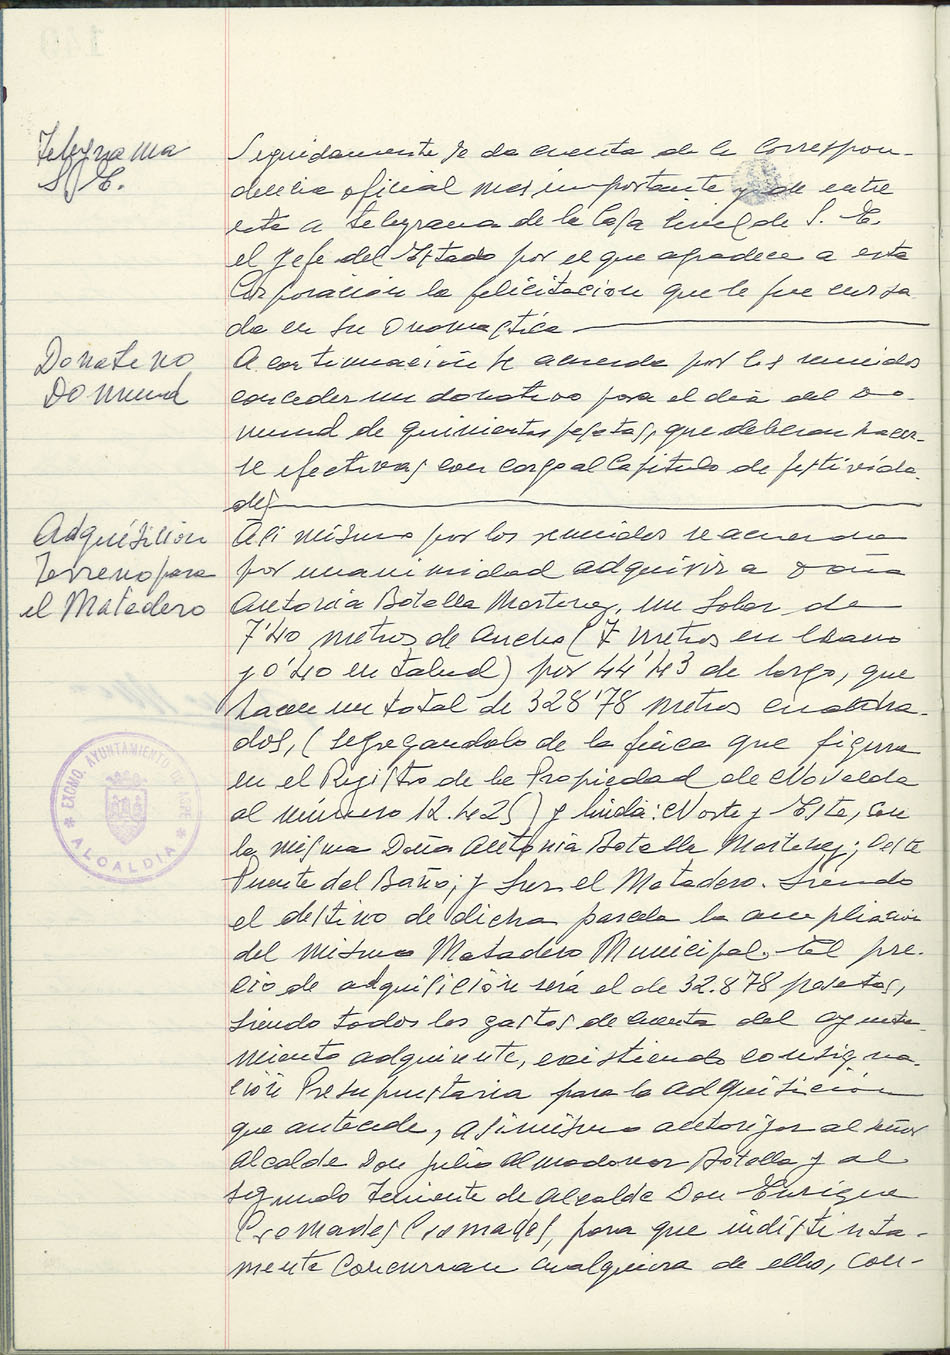 Telegrama
S. E.
Seguidamente se da cuenta de la correspon-
dencia oficial mas importante y de entre
esta a telegrama de la Casa Civil de S. E.
el Jefe del Estado por el que agradece a esta
Corporación la felicitacion que le fue cursa
da en su onomastica
Donativo
Domund
A continuación se acuerda por los reunidos
conceder un donativo para el dia del Do-
mund de quinientas pesetas, que deberan hacer-
se efectivas con cargo al Capitulo de festivida-
des
Adquisicion
Terreno para
el Matadero
Asi mismo por los reunidos se acuerda
por unanimidad adquirir a doña
Antonia Botella Martinez, un solar de
7'40 metros de ancho (7 metros en llano
y 0'40 en talud) por 44'43 de largo, que
hacen un total de 328'78 metros cuadra-
dos, (segregandolo de la finca que figura
en el Registro de la Propiedad de Novelda
al número 12.425) y linda: Norte y Este, con
la misma Doña Antonia Botella Martinez; Oeste
Puente del Baño; y Sur el Matadero. Siendo
el destino de dicha parcela la ampliación
del mismo Matadero Municipal. El pre-
cio de adquisición será el de 32.878 pesetas,
siendo todos los gastos de cuenta del ayunta-
miento adquirente, existiendo consigna-
ción Presupuestaria para la adquisición
que antecede, asimismo autorizar al señor
Alcalde Don Julio Almodovar Botella y al
segundo Teniente de Alcalde Don Enrique
Cremades Cremades, para que indistinta-
mente concurran cualquiera de ellos, con-
EXCMO. AYUNTAMIENTO DE ASPE
* ALCALDIA *